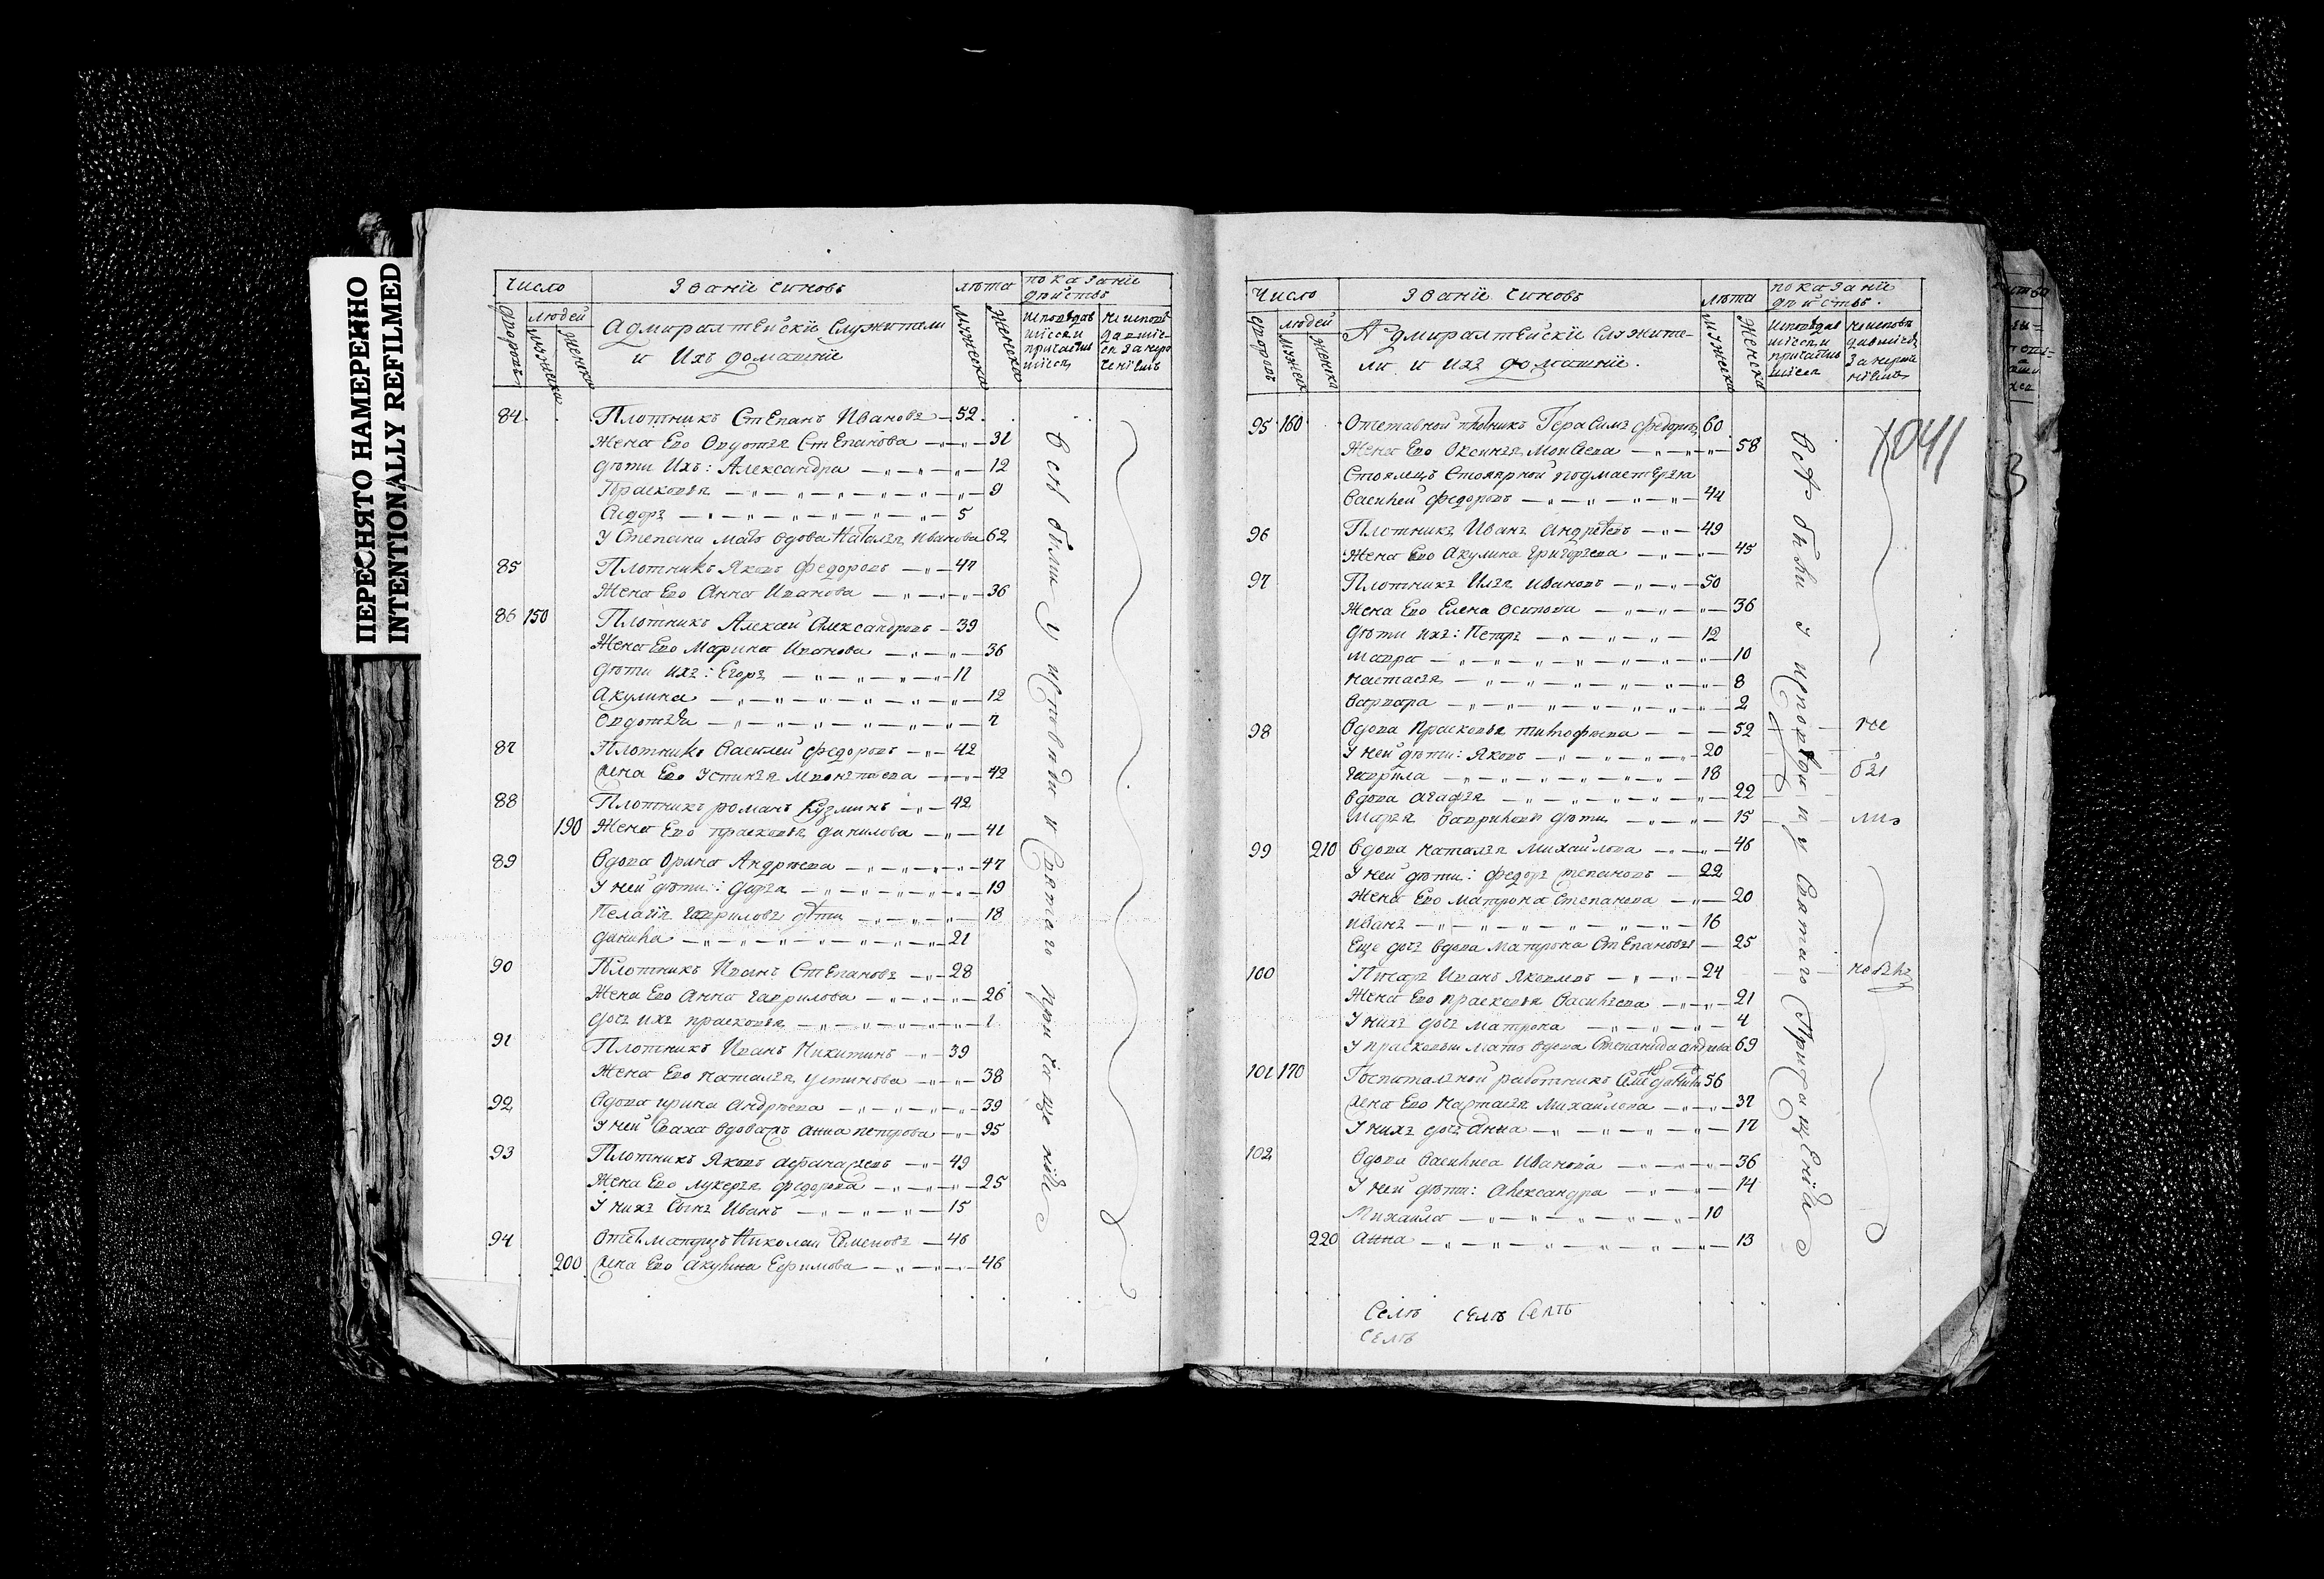 ПЕРЕСНЯТО НАМЕРЕННО
INTENTIONALLY REFILMED
Число
Званїе чиновъ
лѣта
показанїе
дѣйствъ
дворовъ
людей
мужеска
женска
Адмиралтейскїе служители
и ихъ домашнїе
мужеска
женска
исповѣдав
шїеся и
причастив
шїеся
не исповѣ
давшїе
ся за нера
ченїемъ
84. Плотникъ Степанъ Ивановъ 52.
Жена Ево Овдотья Степанова 31
дѣти Ихъ: Александра 12
Прасковья 9
Сидоръ 5
У Степана мать вдова Наталья Иванова 62
85 Плотникъ Яковъ Федоровъ 47
Жена Ево Анна Иванова 36
86 150 Плотникъ Алексай Александровъ 39
Жена Ево Марина Иванова 36
дѣти ихъ: Егоръ 11
Акулина 12
Овдотья 7
87 Плотникъ Василей Федоровъ 42
Жена Ево Устинья 42
88 Плотникъ романъ Кузминъ 42
190 Жена Ево прасковья данилова 41
89 Вдова Орина Андрѣева 47
У ней дѣти: дарья 19
Пелагїя гавриловы дѣти 18
данила 21
90 Плотникъ Иванъ Степановъ 28
Жена Ево Анна гаврилова 26
дочь ихъ прасковья 1
91 Плотникъ Иванъ Никитинъ 39
Жена Ево наталья устинова 38
92 Вдова ирина Андрѣева 39
У ней Сваха вдова Анна петрова 95
93 Плотникъ Яковъ афанасьевъ 49
Жена Ево лукерья федорова 25
У нихъ Сынъ Иванъ 15
94 матрозъ Николай Семеновъ 46
200 Жена Ево Акулина Ефимова 46
всѣ были у исповѣди и святаго причащенїя
Число
Званїе чиновъ
лѣта
показанїе
дѣйствъ.
дворовъ
людей
мужеска
женска
Адмиралтейскїе служите-
ли и ихъ домашнїе.
мужеска
женска
исповѣдав
шїеся и
причастив
шїеся
не исповѣ
давшїеся
за нерачѣ
нїемъ
1041
95 160 Отставной плотникъ Герасимъ федоровъ 60
Жена Ево Оксинья Моисеева 58
Стоялецъ Столярной подмастерья
Василей федоровъ 44
96 Плотникъ Иванъ Андрѣевъ 49
Жена Ево Акулина Григорьева 45
97 Плотникъ Илья Ивановъ 50
Жена Ево Елена Осипова 36
дѣти ихъ: Петръ 12
мавра 10
настасья 8
варвара 2
98 Вдова Прасковья тимофѣева 52 не
У ней дѣти: Яковъ 20
гаврила 18 бы
вдова агафья 22
марья дѣти 15 ли
99 210 Вдова наталья Михайлова 46
У ней дѣти: федоръ Степановъ 22
Жена Ево матрона Степанова 20
иванъ 16
Еще дочь вдова матрона Степанова 25
100 Писарь Иванъ Яковлевъ 24
Жена Ево прасковья Васильева 21
У нихъ дочь матрона 4
У прасковьи мать вдова Степанида 69
101 170 Госпитальной работникъ 56
Жена Ево настасья Михайлова 37
У нихъ дочь Анна 17
102 Вдова Василиса Иванова 36
У ней дѣти: Александра 14
Михайла 10
220 Анна 13
всѣ были у исповѣди и у святаго причащенїя
Селѣ селѣ Селѣ
Селѣ